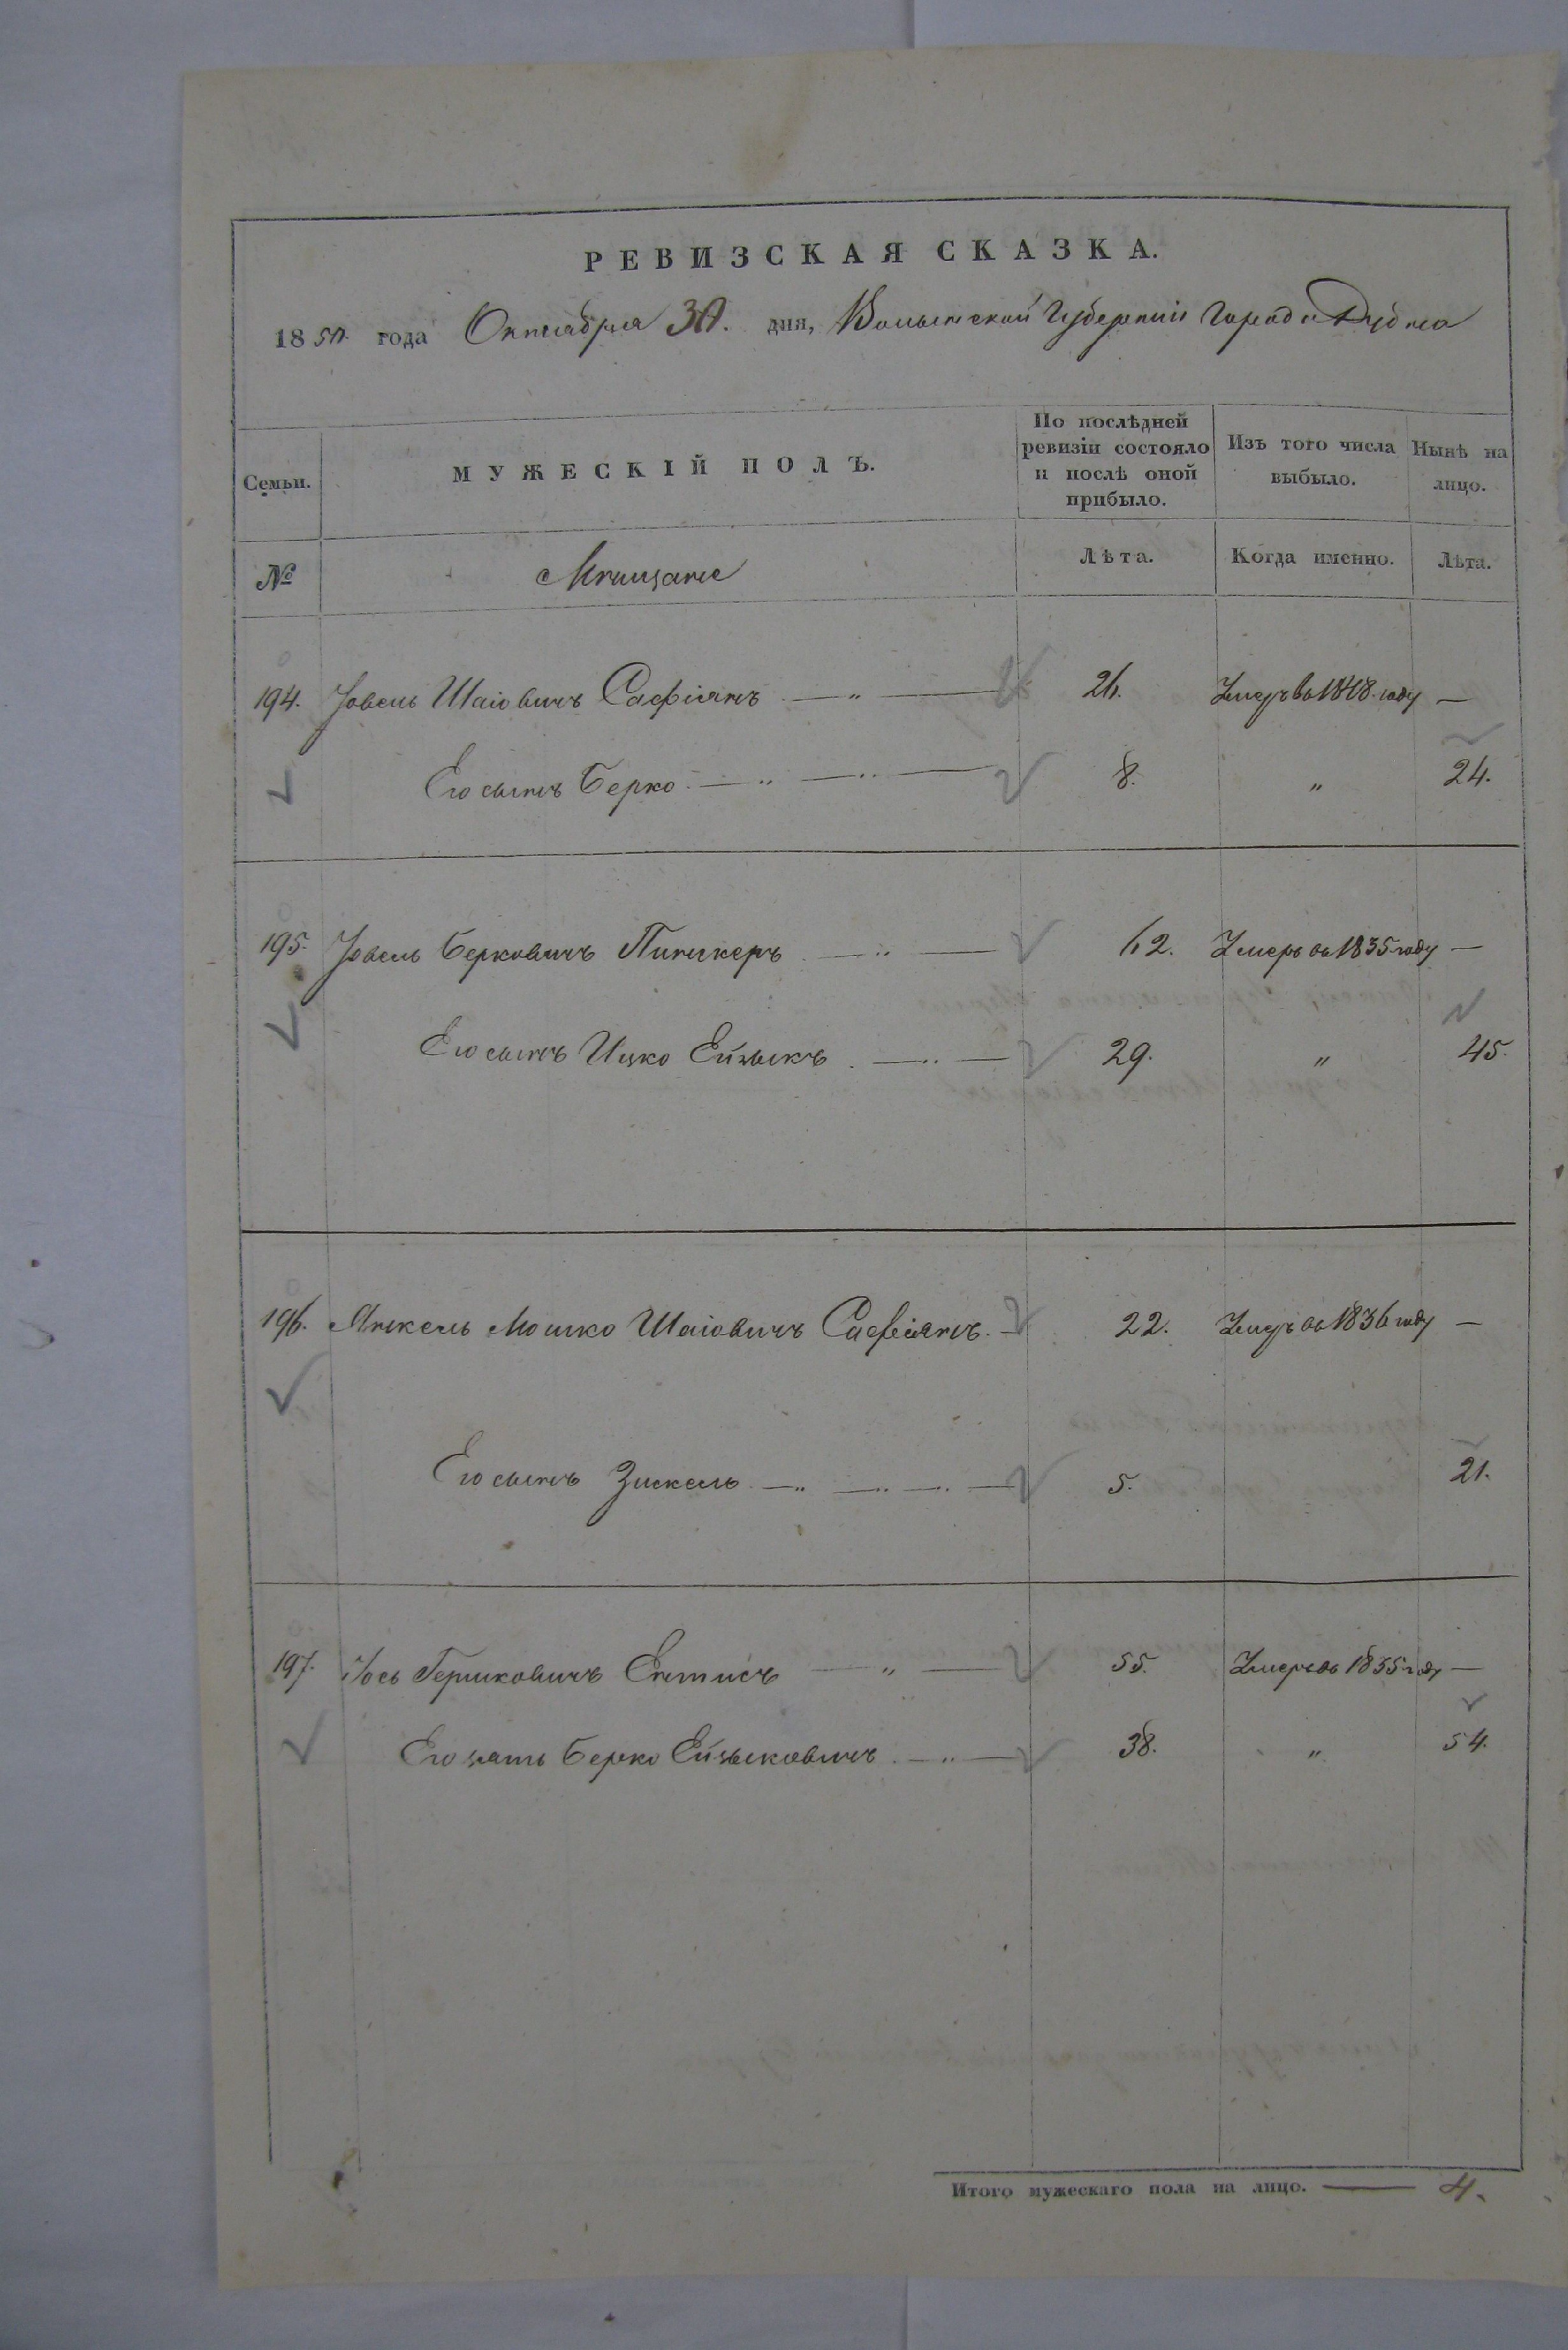 РЕВИЗСКАЯ СКАЗКА.
1850 года Октября 30. дня, Волынской Губернии Города Дубна
Семьи.
МУЖЕСКІЙ ПОЛЪ.
По послѣдней ревизіи состояло и послѣ оной прибыло.
Изъ того числа выбыло.
Нынѣ на лицо.
№ Мещане Лѣта. Когда именно. Лѣта.
194. Іовель Шаіовичъ Сафіянъ — " — 26. Умеръ въ 1848 году —
Его сынъ Берко — " — " — 8. " 24.
195. Іовель Берковичъ Пинчкеръ — " — 62. Умеръ въ 1835 году —
Его сынъ Ицко Ейзыкъ — " — 29. " 45.
196. Янкель Мошко Шаіовичъ Сафіянъ — 22. Умеръ въ 1836 году —
Его сынъ Зискель — " — " — 5. 21.
197. Іось Гершковичъ Ентисъ — " — 55. Умеръ въ 1835 году —
Его зять Берко Ейзыковичъ — " — 38. " 54.
Итого мужескаго пола на лицо. — 4.